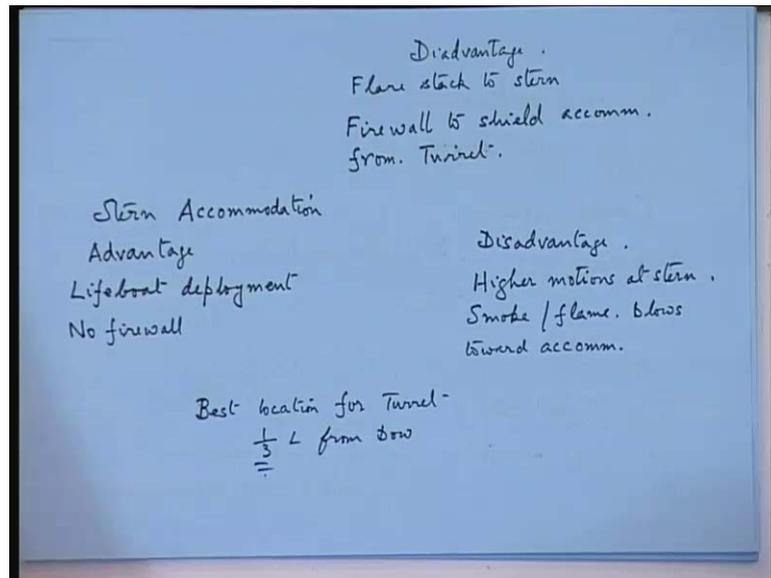 Disadvantage.
Flare stack to stern
Firewall to shield accomm.
from. Turret.
Stern Accommodation
Advantage
Lifeboat deployment
No firewall
Disadvantage.
Higher motions at stern.
Smoke / flame. blows
toward accomm.
Best location for Turret
1/3 L from Bow